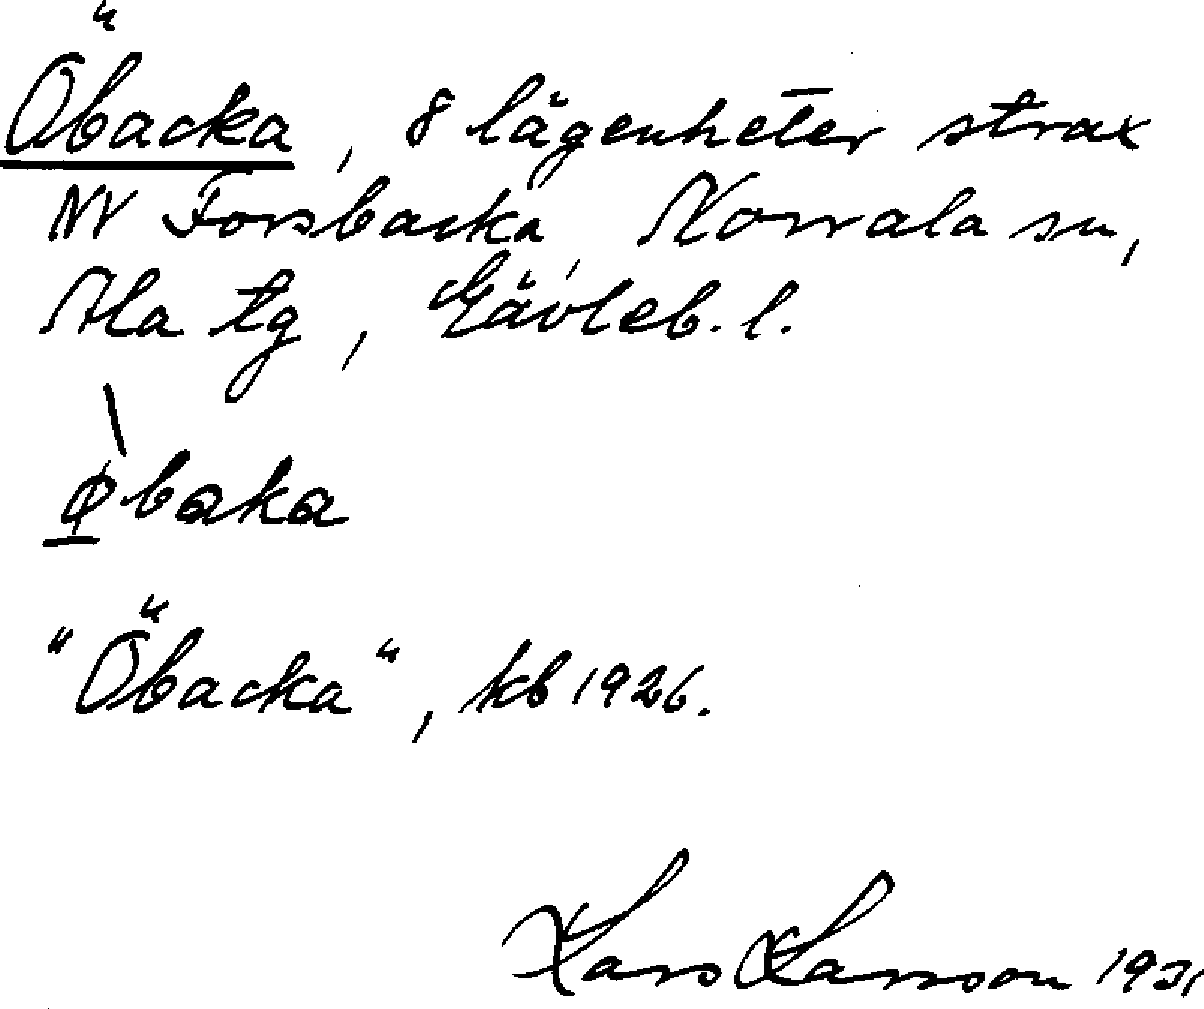 Öbacka, 8 lägenheter strax
NV Forsbacka, Norrala sn,
Ala tg, Gävleb. l.
ø̀baka
"Öbacka", kb 1926.
Lars Larsson 1931